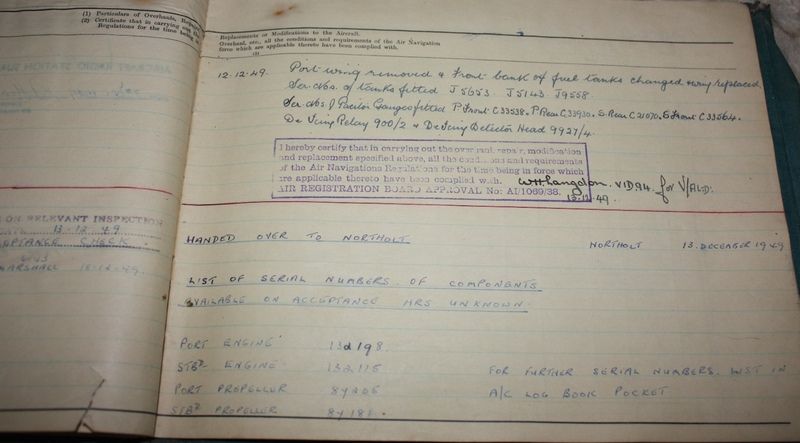 (1) Particulars of Overhauls, Repairs,
(2) Certificate that in carrying out the
Regulations for the time being in
Replacements or Modifications to the Aircraft.
Overhaul, etc., all the conditions and requirements of the Air Navigation
force which are applicable thereto have been complied with.
(3)
12.12.49. Port wing removed & Front bank of fuel tanks changed & wing replaced
Ser Nos. of tanks fitted J5653 J5143 J9558
Ser Nos. of Pacitor Gauges fitted P Front C33538. P Rear C33930. S. Rear C21070. S Front C33564.
De Icing Relay 900/2 & De Icing Detector Head 9927/4.
I hereby certify that in carrying out the overhaul, repair, modification
and replacement specified above, all the conditions and requirements
of the Air Navigations Regulations for the time being in force which
are applicable thereto have been complied with.
AIR REGISTRATION BOARD APPROVAL No: AI/1069/38.
W H Langdon. VIDAL. for V/ALD.
12.12.49.
ON RELEVANT INSPECTION
13.12.49
ACCEPTANCE CHECK
MARSHALL
HANDED OVER TO NORTHOLT
NORTHOLT 13. DECEMBER 1949
LIST OF SERIAL NUMBERS OF COMPONENTS
AVAILABLE ON ACCEPTANCE HRS UNKNOWN.
PORT ENGINE 132198
STBD ENGINE 132115
PORT PROPELLER
STBD PROPELLER
FOR FURTHER SERIAL NUMBERS. LIST IN
A/C LOG BOOK POCKET